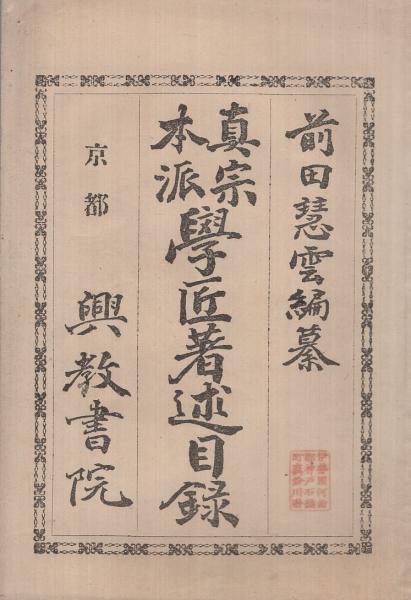 前田慧雲編纂
真宗
本派
學匠著述目錄
京都
興教書院